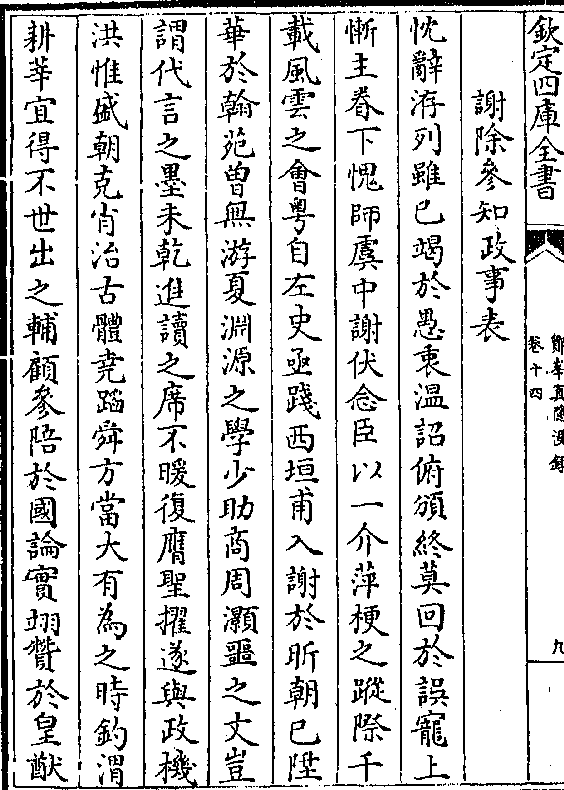 欽定四庫全書
鄮峯真隱漫錄
卷十四
九
謝除參知政事表
忱辭洊列雖已竭於愚衷溫詔俯頒終莫回於誤寵上
慚主眷下愧師虞中謝伏念臣以一介萍梗之蹤際千
載風雲之會粵自左史亟踐西垣甫入謝於昕朝已陞
華於翰苑曾無游夏淵源之學少助商周灝噩之文豈
謂代言之墨未乾進讀之席不暖復膺聖擢遂與政機
洪惟盛朝克肖治古體堯蹈舜方當大有為之時釣渭
耕莘宜得不世出之輔顧參陪於國論實翊贊於皇猷